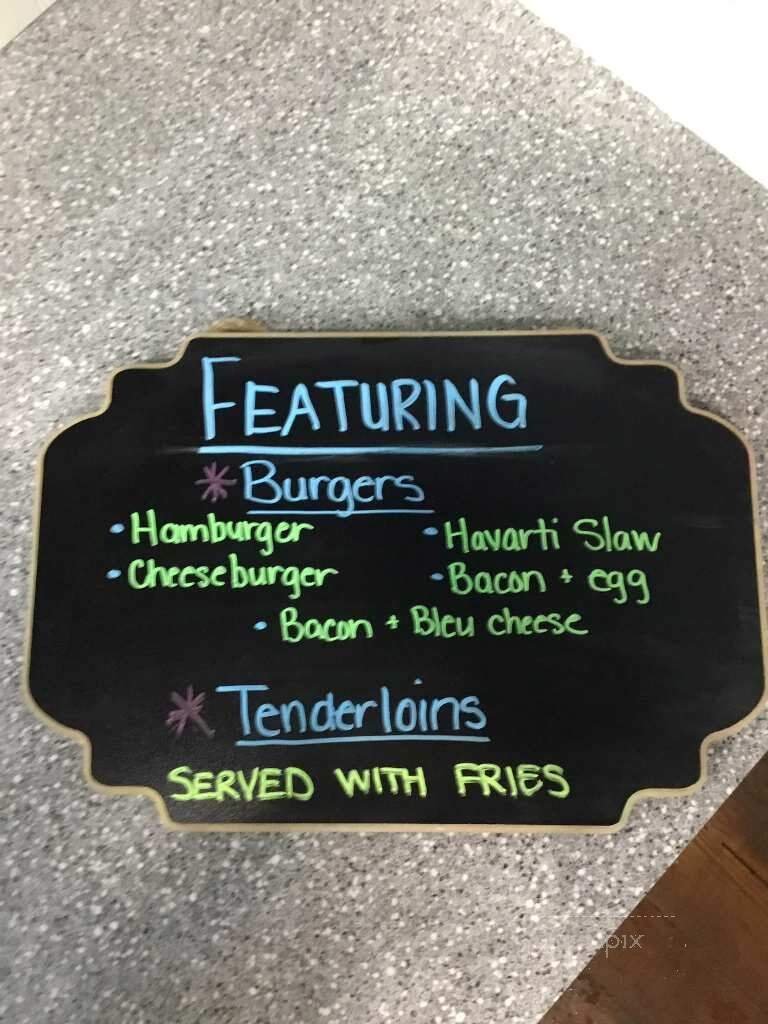 FEATURING
* Burgers
• Hamburger • Havarti Slaw
• Cheeseburger • Bacon + egg
• Bacon + Bleu cheese
* Tenderloins
SERVED WITH FRIES